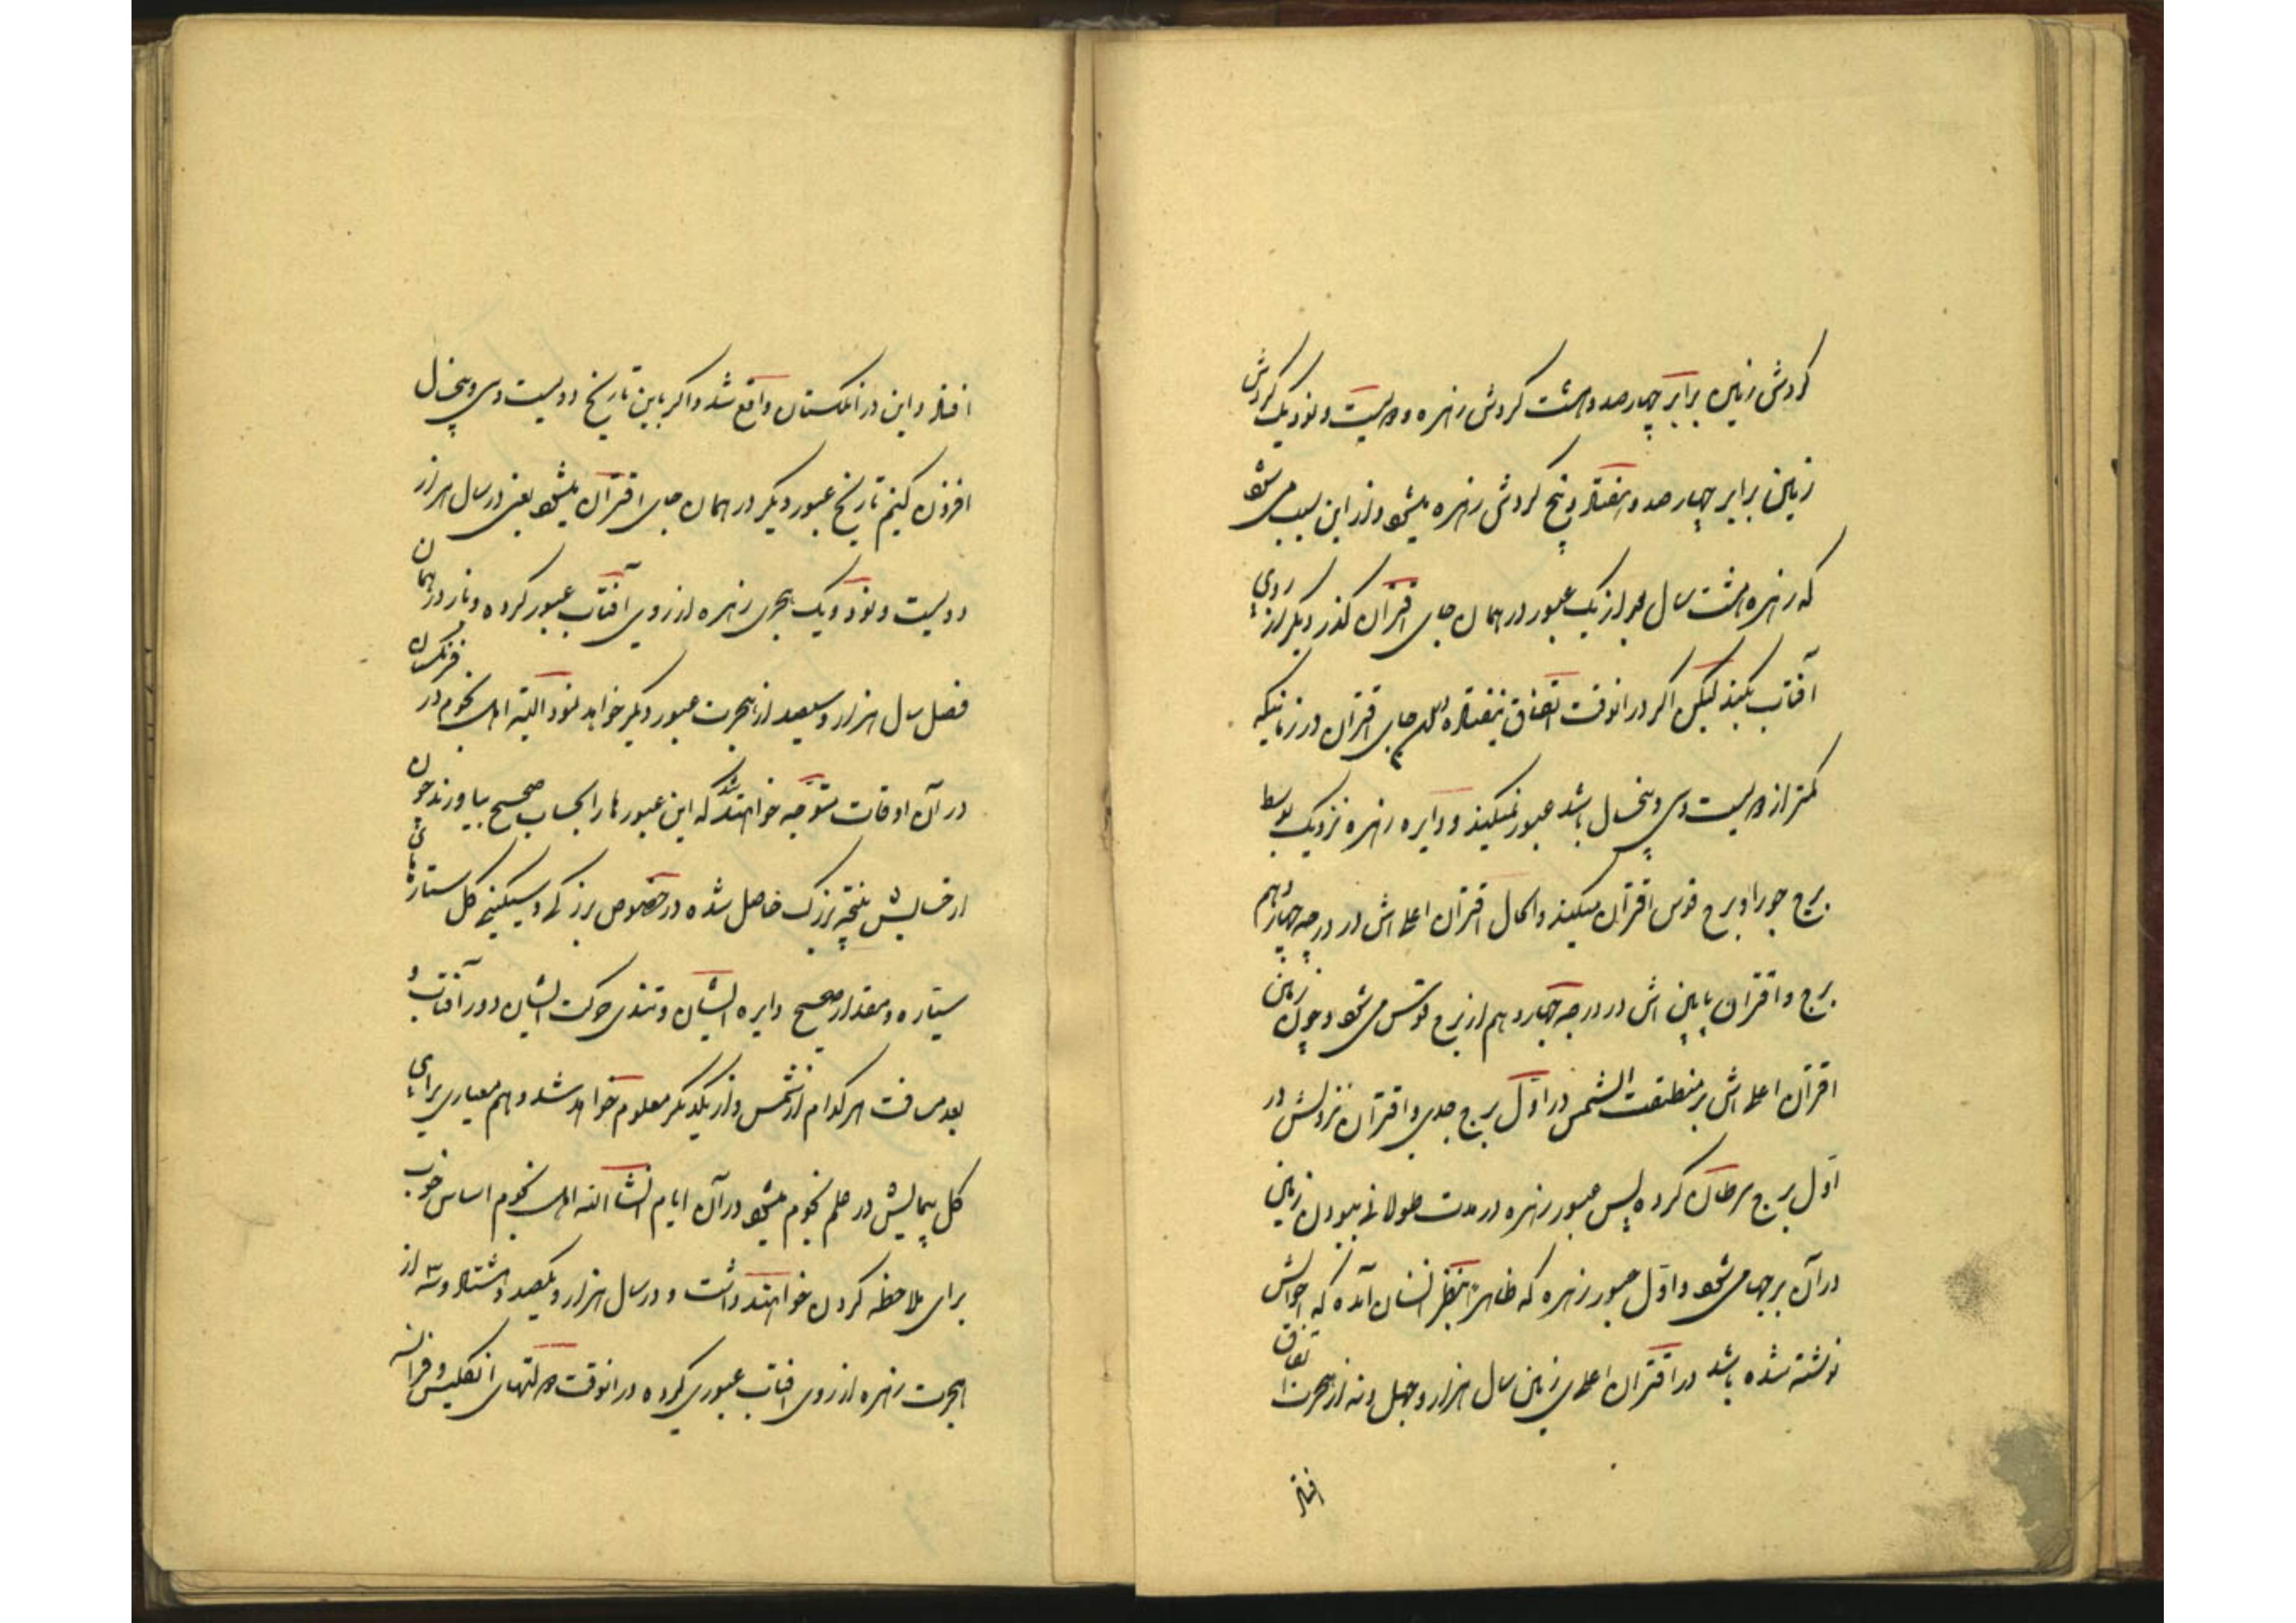 گردش زمین برابر چهارصد و هشت گردش زهره و دویست و نود و یک گردش
زمین برابر چهارصد و هفتاد و پنج گردش زهره میشود و از این سبب می شود
که زهره هشت سال بعد از یک عبور در همان جای اقتران گذر دیگر از روی
آفتاب بکند لیکن اگر در آنوقت اتفاق نیفتاد در جای اقتران در زمانیکه
کمتر از دویست و سی و پنجسال باشد عبور نمیکند و دایره زهره نزدیک بوسط
برج جوزا و برج قوس اقتران میکند و الحال اقتران اعلی اش در درجه چهاردهم
برج و اقتران پایین اش در درجه چهاردهم از برج قوس می شود و چون زمین
اقتران اعلی اش بر منطقت الشمس در اول برج جدی و اقتران نزولش در
اول برج سرطان کرده پس عبور زهره در مدت طولانی ببودن زمین
در آن برجها می شود و اول عبور زهره که ظاهرا بنظر انسان آمده که احوالش
نوشته شده باشد در اقتران اعلای زمین سال هزار و چهل و نه از هجرت اتفاق
افتاد
افتاد و این در انگلستان واقع شد و اگر باین تاریخ دویست و سی و پنجسال
افزون کنیم تاریخ عبور دیگر در همان جای اقتران میشود یعنی در سال هزار
دویست و نود و یک هجری زهره از روی آفتاب عبور کرده و باز در همان
فصل سال هزار و سیصد از هجرت عبور دیگر خواهد نمود البته اهل نجوم در فرنگستان
در آن اوقات متوجه خواهند شد که این عبورها را بحساب صحیح بیاورند چون
از حسابش نتیجه بزرگ حاصل شده در خصوص بزرگی و سنگینی کل ستاره های
سیّاره و مقدار صحیح دایره ایشان و تندی حرکت ایشان دور آفتاب و
بعد مسافت هر کدام از شمس و از یکدیگر معلوم خواهد شد و هم معیاری برای
کل پیمایش در علم نجوم میشود در آن ایام انشاالله اهل نجوم اساس خوب
برای ملاحظه کردن خواهند داشت و در سال هزار و یکصد و هشتاد و سه از
هجرت زهره از روی افتاب عبوری کرده در انوقت دولتهای انگلیس و فرانسه